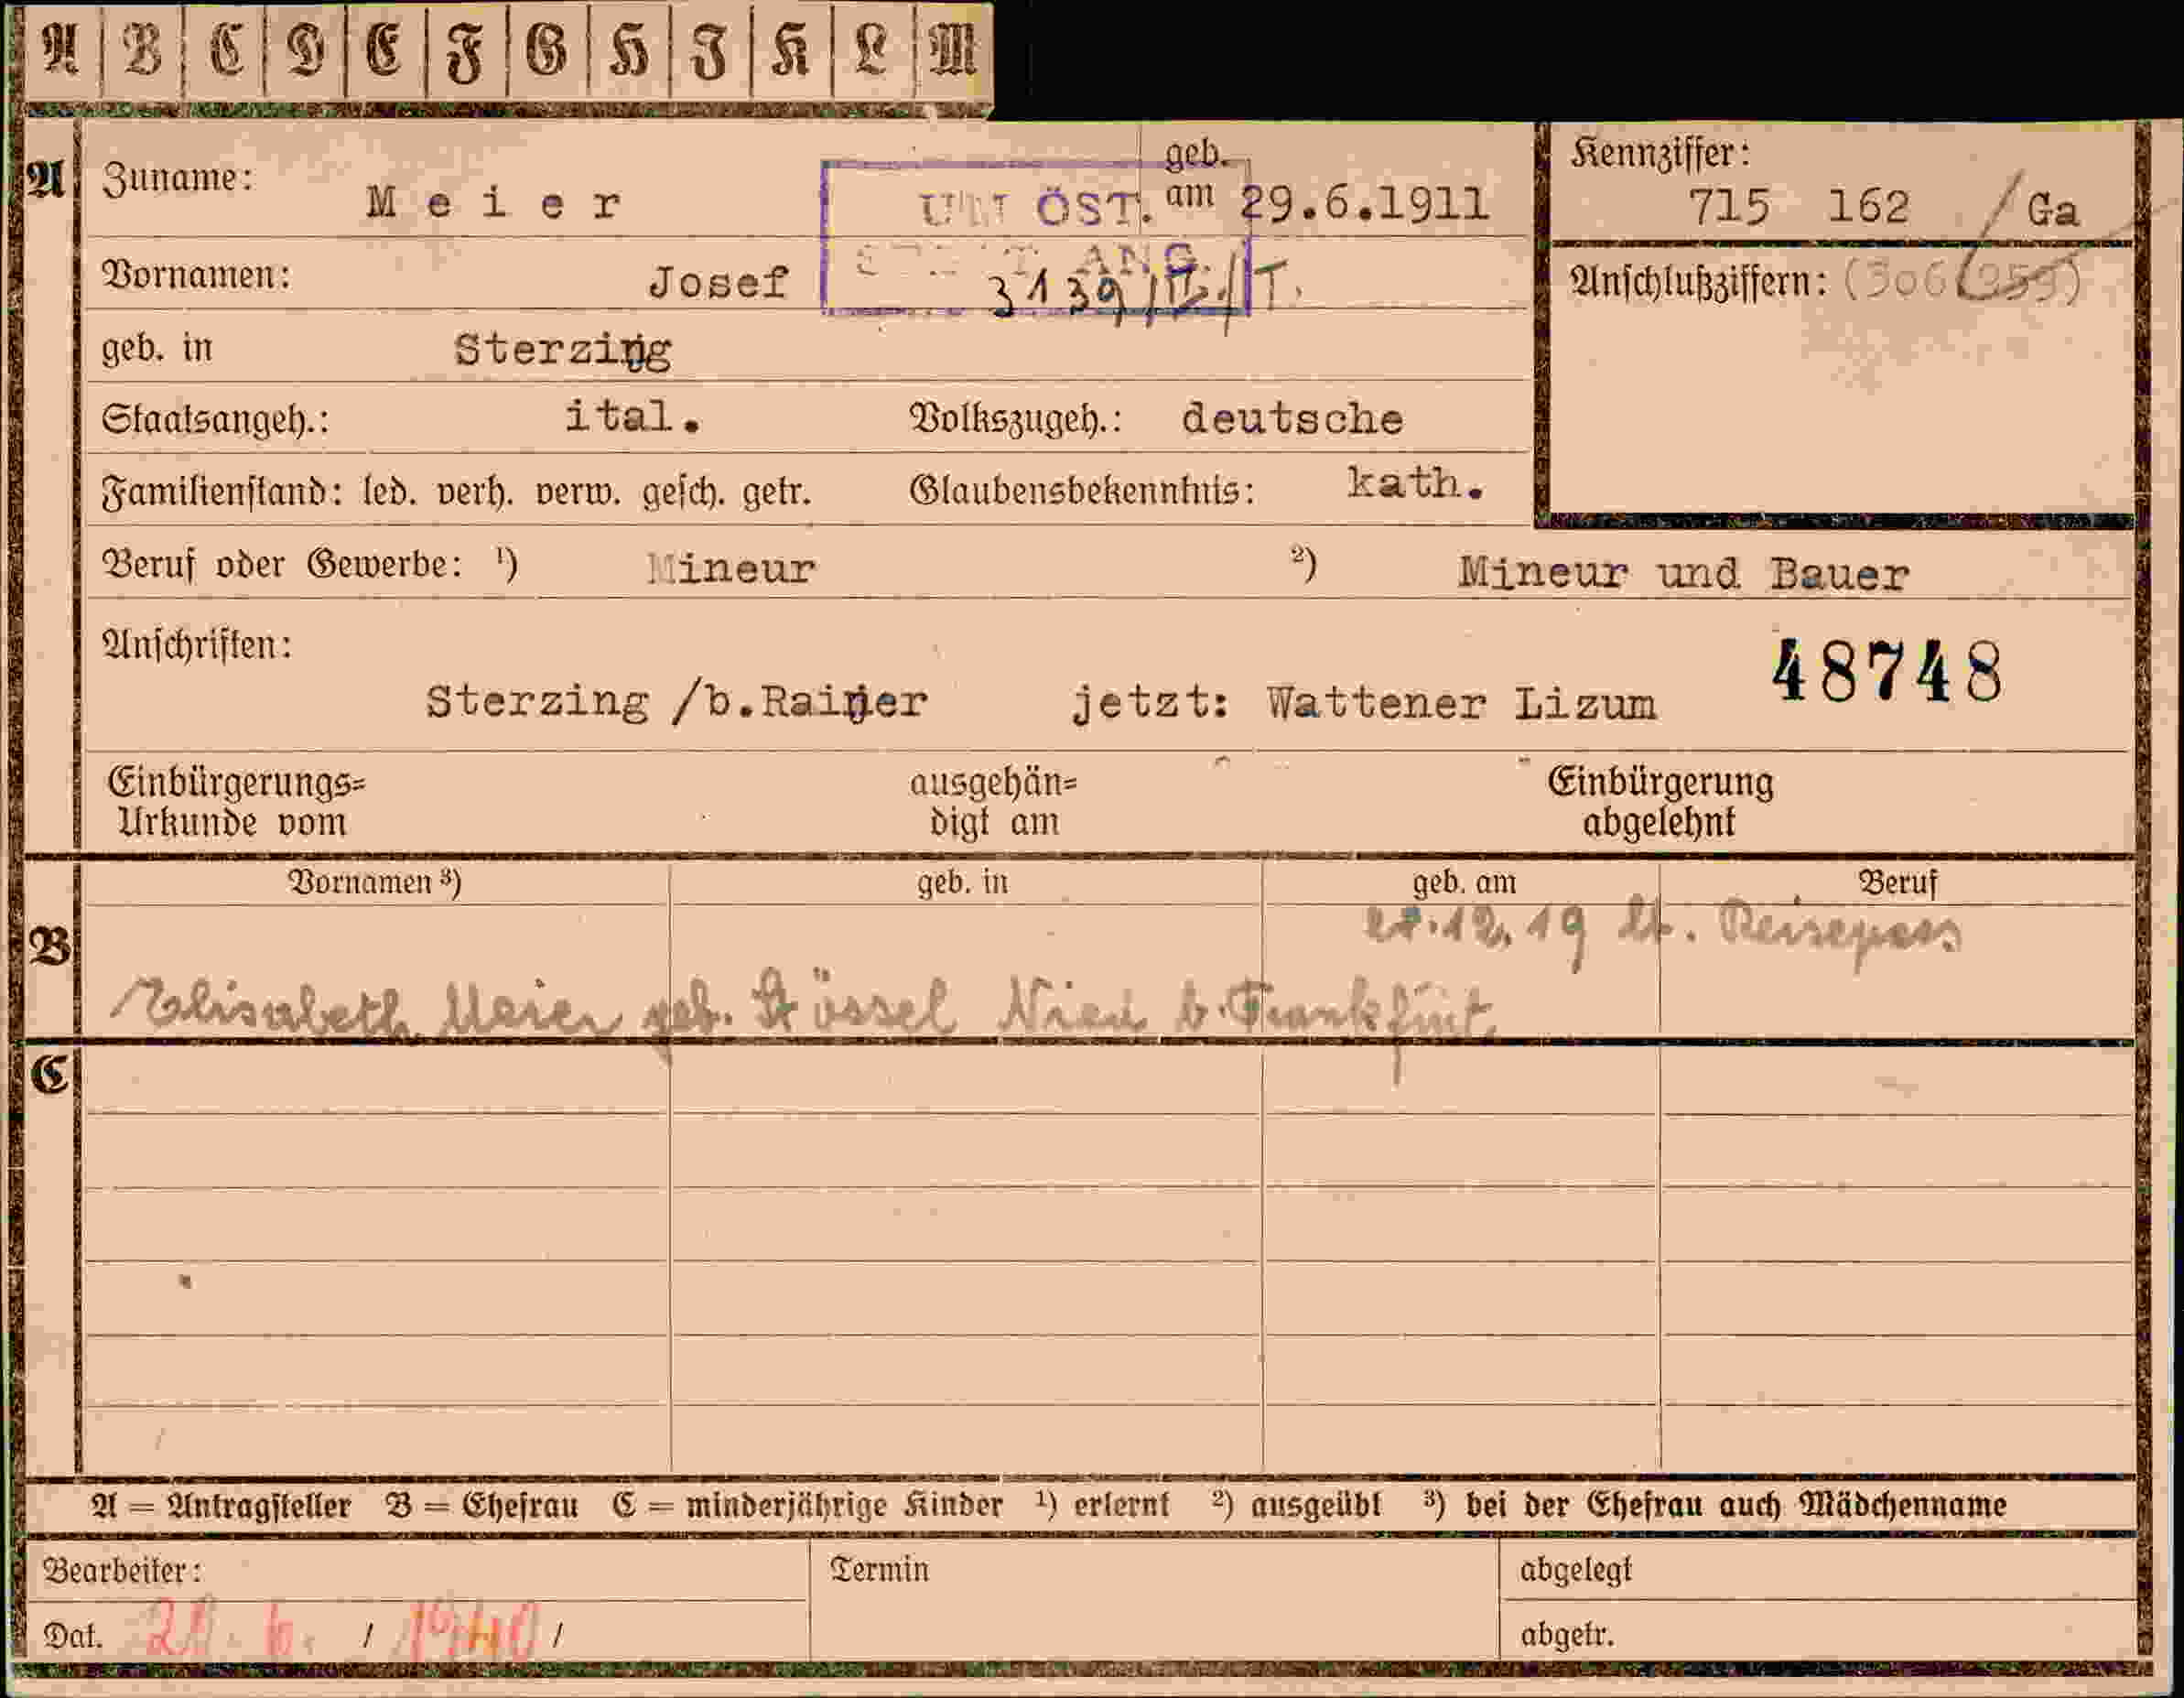 A B C D E F G H I K L M
A Zuname: Meier geb. am 29.6.1911
ÖST.
Kennziffer: 715 162 /Ga
Vornamen: Josef
ANG.
3139/II./T.
Anschlußziffern: (306 959)
geb. in Sterzing
Staatsangeh.: ital. Volkszugeh.: deutsche
Familienstand: led. verh. verw. gesch. getr. Glaubensbekenntnis: kath.
Beruf oder Gewerbe: ¹) Mineur ²) Mineur und Bauer
Anschriften: 48748
Sterzing /b.Rainer jetzt: Wattener Lizum
Einbürgerungs= ausgehän= Einbürgerung
Urkunde vom digt am abgelehnt
Vornamen ³) geb. in geb. am Beruf
B
12. 19 lt. Reisepass
Elisabeth Meier geb. Stössel Nied b. Frankfurt
C
A = Antragsteller B = Ehefrau C = minderjährige Kinder ¹) erlernt ²) ausgeübt ³) bei der Ehefrau auch Mädchenname
Bearbeiter: Termin abgelegt
Dat. / 1940 / abgetr.